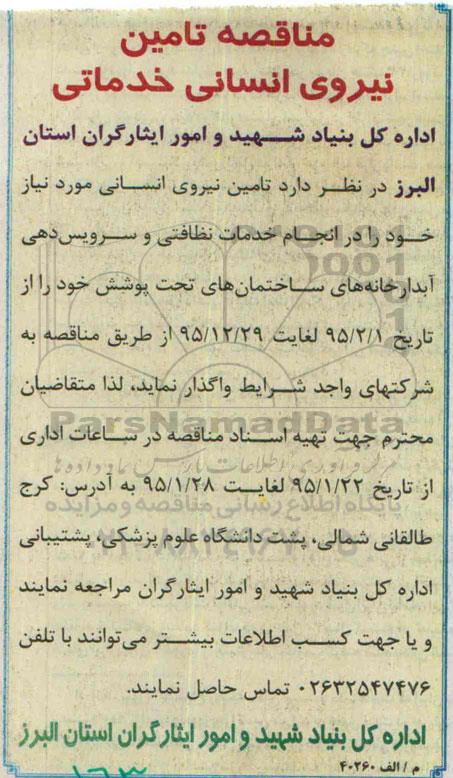 مناقصه تامین
نیروی انسانی خدماتی
اداره کل بنیاد شهید و امور ایثارگران استان
البرز در نظر دارد تامین نیروی انسانی مورد نیاز
خود را در انجام خدمات نظافتی و سرویس‌دهی
آبدارخانه‌های ساختمان‌های تحت پوشش خود را از
تاریخ ۹۵/۲/۱ لغایت ۹۵/۱۲/۲۹ از طریق مناقصه به
شرکتهای واجد شرایط واگذار نماید، لذا متقاضیان
ParsNamadData
محترم جهت تهیه اسناد مناقصه در ساعات اداری
از تاریخ ۹۵/۱/۲۲ لغایت ۹۵/۱/۲۸ به آدرس: کرج
پایگاه اطلاع رسانی مناقصه و مزایده
طالقانی شمالی، پشت دانشگاه علوم پزشکی، پشتیبانی
اداره کل بنیاد شهید و امور ایثارگران مراجعه نمایند
و یا جهت کسب اطلاعات بیشتر می‌توانند با تلفن
۰۲۶۳۲۵۴۷۴۷۶ تماس حاصل نمایند.
اداره کل بنیاد شهید و امور ایثارگران استان البرز
م / الف ۴۰۲۶۰
۱۶۳